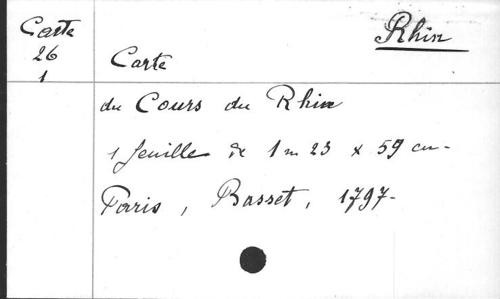 Carte
26
1
Rhin
Carte
du Cours du Rhin
1 feuille de 1m 23 x 59 cm-
Paris, Basset, 1797-